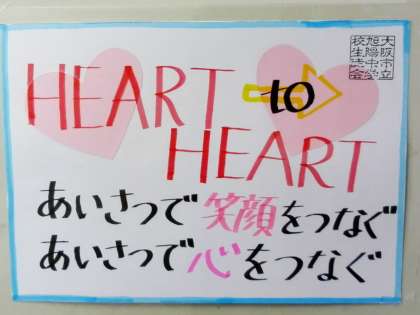 HEART
to
HEART
あいさつで笑顔をつなぐ
あいさつで心をつなぐ
大阪市立
旭陽中学
校生徒会